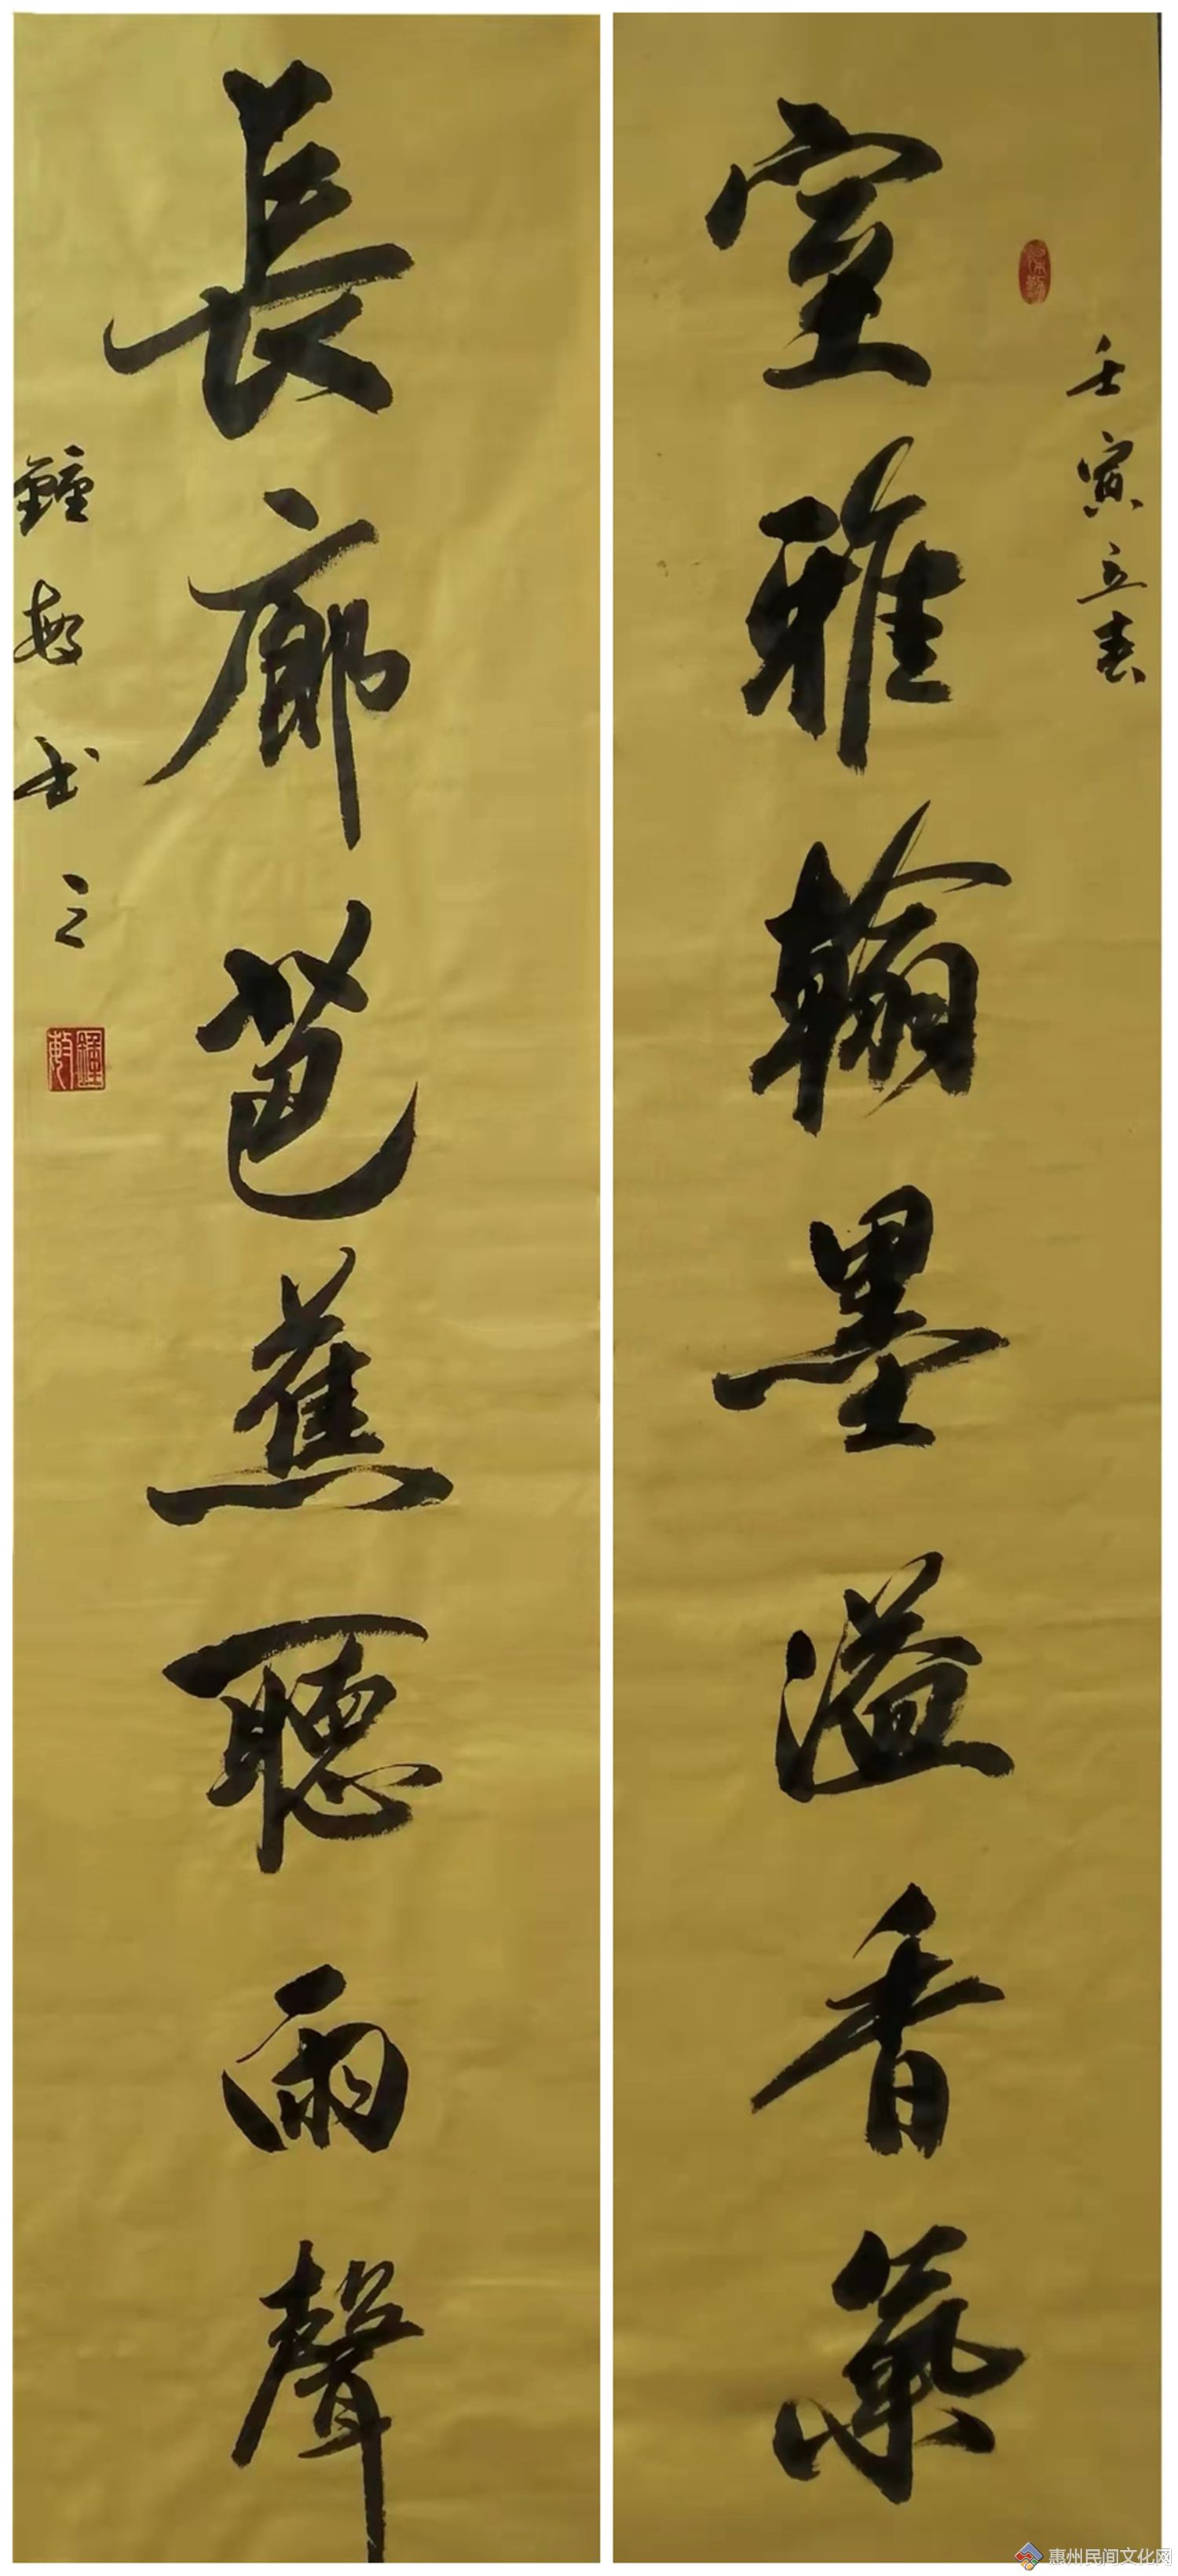 壬寅立春
室雅翰墨溢香氣
長廊芭蕉聽雨聲
鐘敏书之
惠州民间文化网